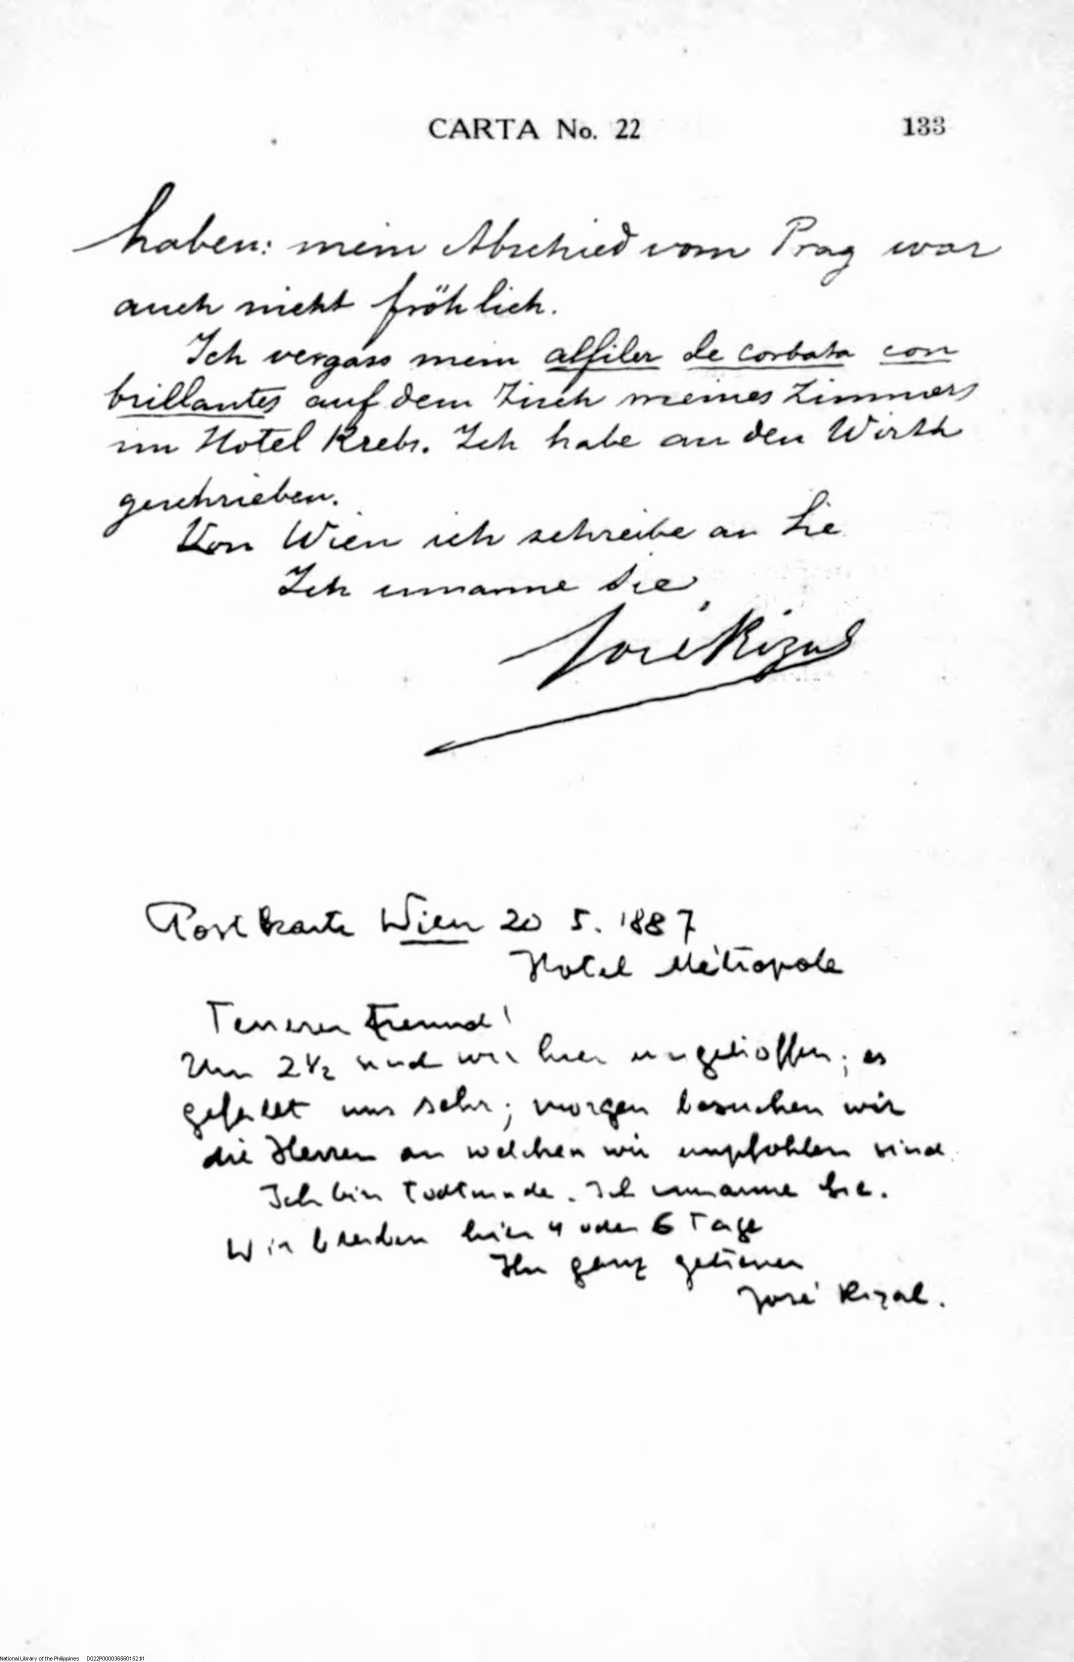 CARTA No. 22 133
haben: mein Abschied vom Prag war
auch nicht fröhlich.
Ich vergass mein alfiler de corbata con
brillantes auf dem Tisch meines Zimmers
im Hotel Krebs. Ich habe an den Wirth
geschrieben.
Von Wien ich schreibe an Sie
Ich umarme Sie
José Rizal
Postkarte Wien 20 5. 1887
Hotel Métropole
Teuerer Freund!
Um 2½ sind wir hier eingetroffen; es
gefället uns sehr; morgen besuchen wir
die Herren an welchen wir empfohlen sind.
Ich bin todtmüde. Ich umarme Sie.
Wir bleiben hier 4 oder 6 Tage
Ihr ganz getreuer
José Rizal.
National Library of the Philippines